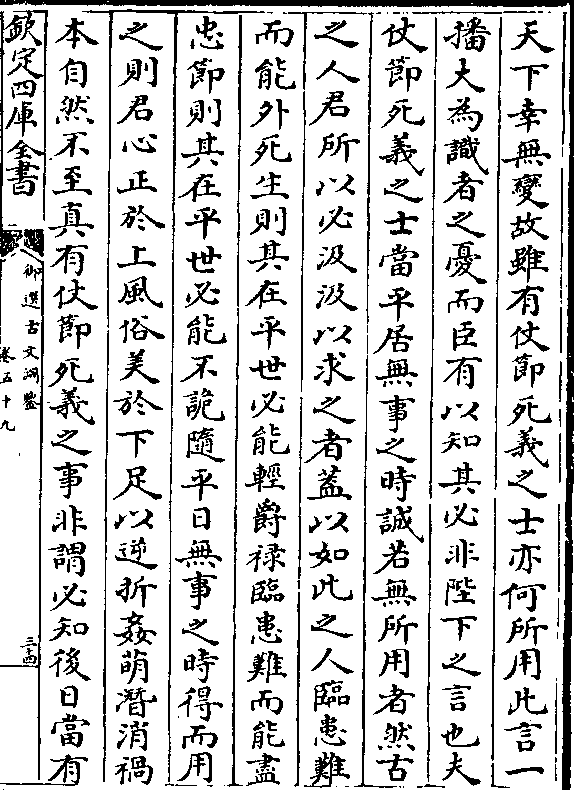 天下幸無變故雖有仗節死義之士亦何所用此言一
播大為識者之憂而臣有以知其必非陛下之言也夫
仗節死義之士當平居無事之時誠若無所用者然古
之人君所以必汲汲以求之者蓋以如此之人臨患難
而能外死生則其在平世必能輕爵祿臨患難而能盡
忠節則其在平世必能不詭隨平日無事之時得而用
之則君心正於上風俗美於下足以逆折姦萌潛消禍
本自然不至真有仗節死義之事非謂必知後日當有
欽定四庫全書
御選古文淵鑒
卷五十九
三十四